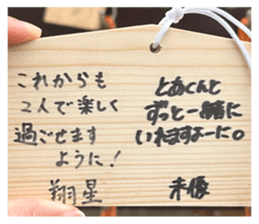 これからも
2人で楽しく
過ごせます
ように!
翔星
とあくんと
ずっと一緒に
いれますよーに。
未優